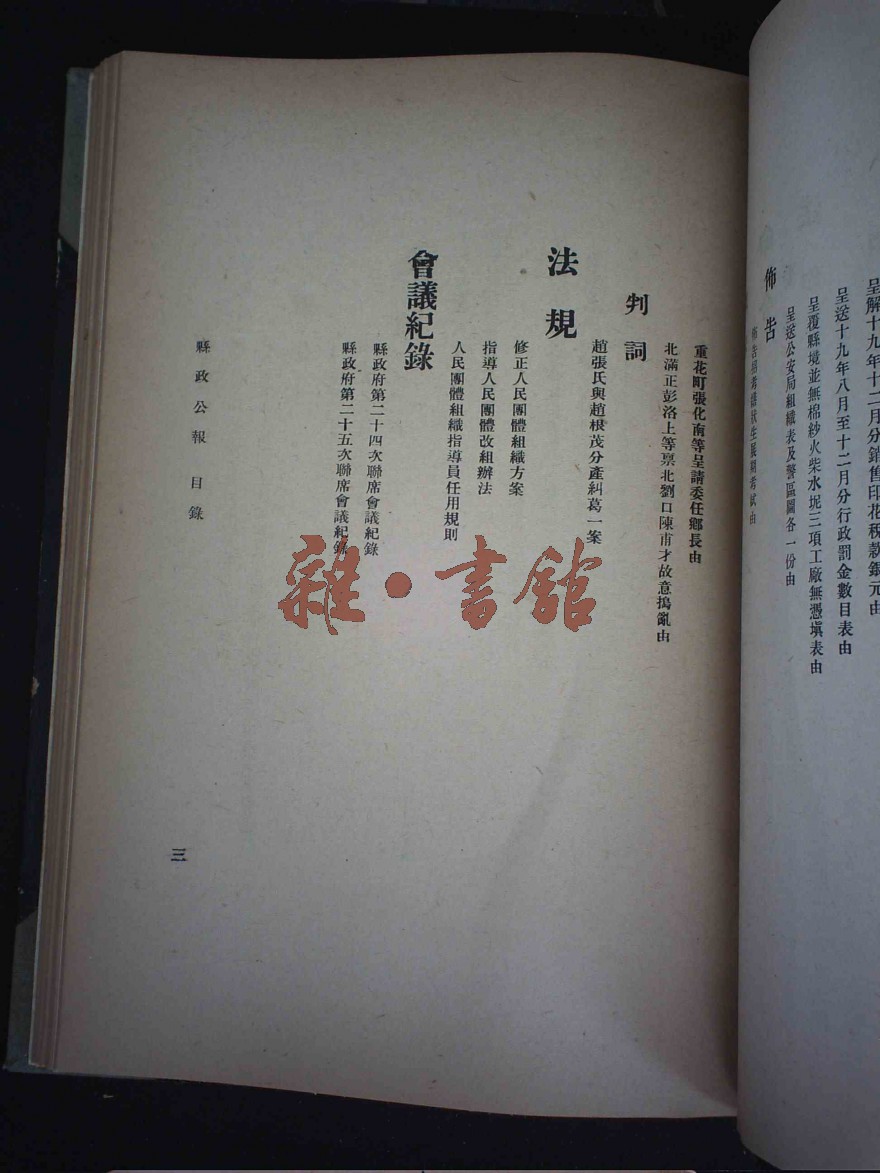 呈解十九年十二月分銷售印花稅款銀元由
呈送十九年八月至十二月分行政罰金數目表由
呈覆縣境並無棉紗火柴水坭三項工廠無憑塡表由
呈送公安局組織表及警區圖各一份由
佈告
重花町張化南等呈請委任鄉長由
北滿正彭洛上等禀北劉口陳甫才故意搗亂由
判詞
趙張氏與趙根茂分產糾葛一案
法規
修正人民團體組織方案
指導人民團體改組辦法
人民團體組織指導員任用規則
會議紀錄
縣政府第二十四次聯席會議紀錄
縣政府第二十五次聯席會議紀錄
縣政公報 目錄
三
雜·書館